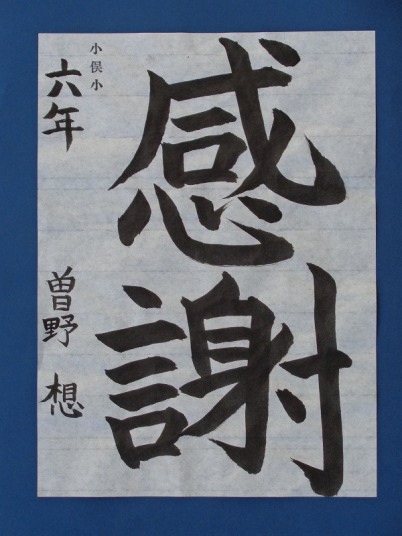 感謝
小俣小
六年
曽野 想